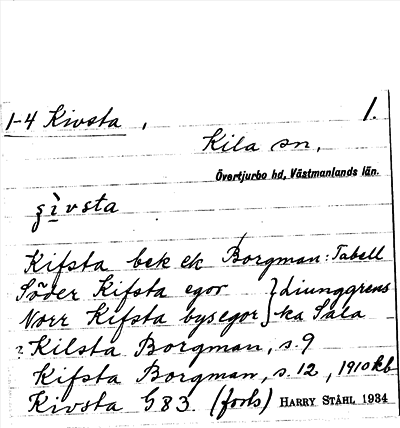 1-4 Kivsta, 1.
Kila sn,
Övertjurbo hd, Västmanlands län.
şìvsta
Kifsta bek ek Borgman: Tabell
Söder Kifsta egor } diunggrens
Norr Kifsta bysegor } ka Sala
? Kilsta Borgman, s. 9
Kifsta Borgman, s. 12, 1910 kb
Kivsta G83. (forts) HARRY STÅHL 1934